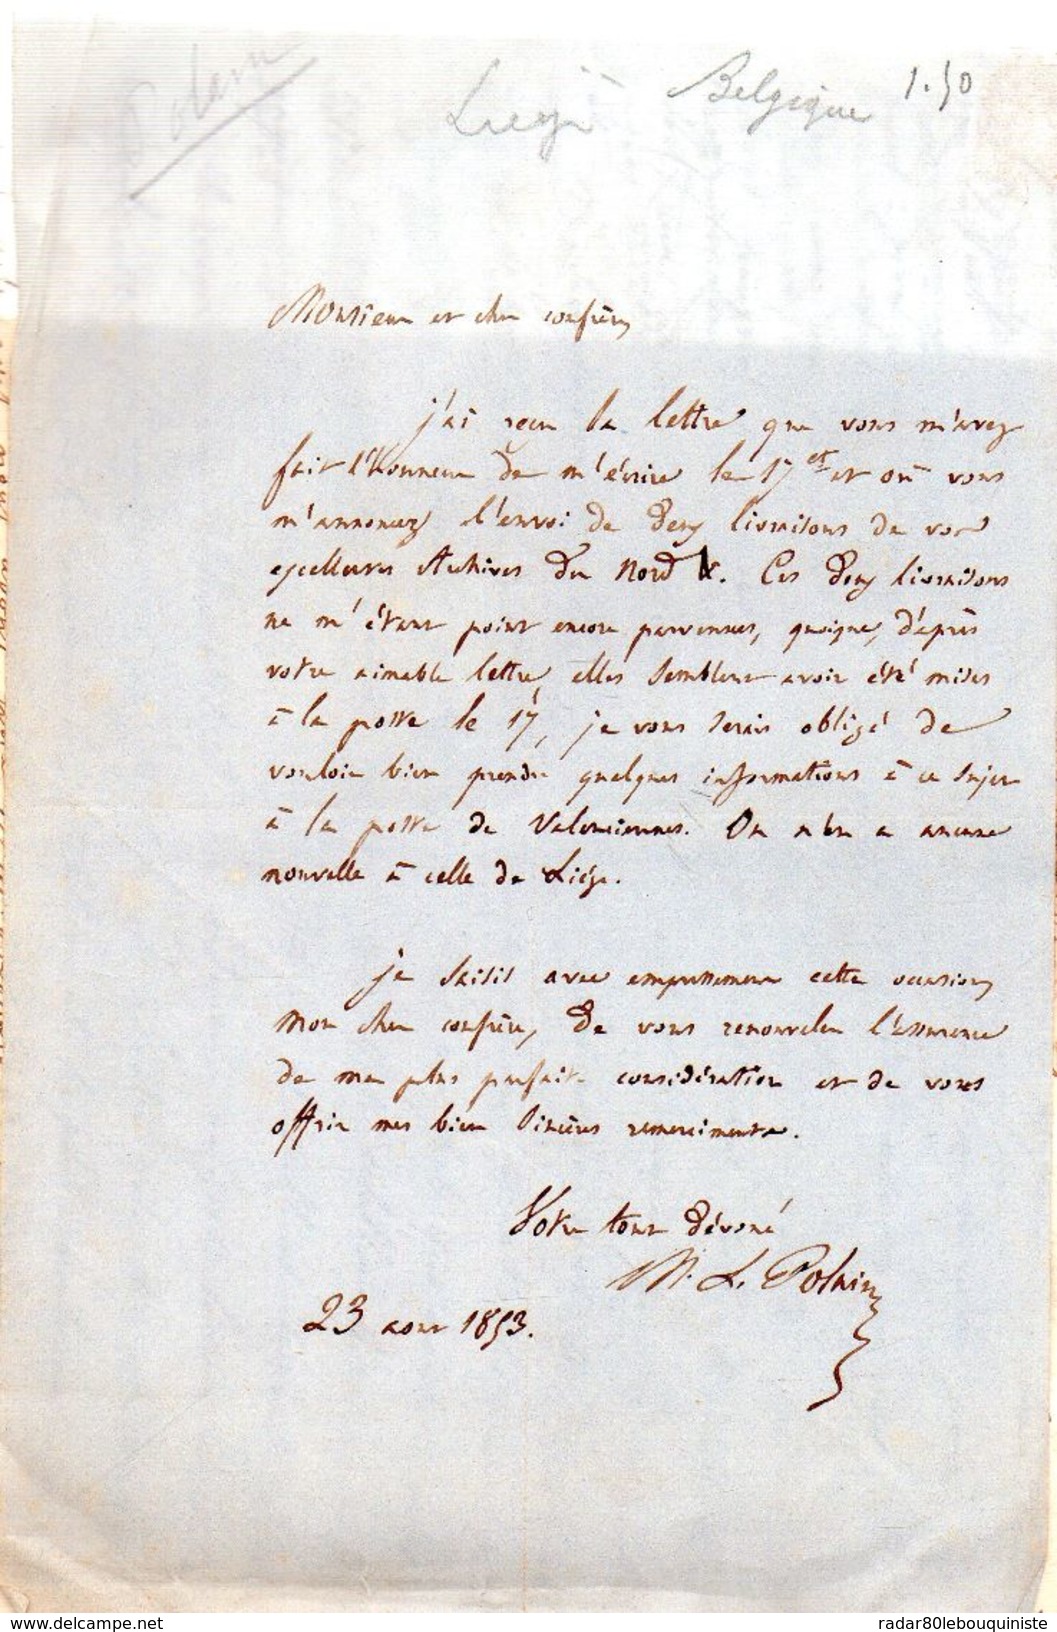 Polain
Liège
Belgique
1.50
Monsieur et cher confrère,
j'ai reçu la lettre que vous m'avez
fait l'honneur de m'écrire le 17 ct et où vous
m'annoncez l'envoi de deux livraisons de vos
excellentes Archives du Nord &. Ces deux livraisons
ne m'étant point encore parvenues, quoique, d'après
votre aimable lettre, elles semblent avoir été mises
à la poste le 17, je vous serais obligé de
vouloir bien prendre quelques informations à ce sujet
à la poste de Valenciennes. On n'en a aucune
nouvelle à celle de Liége.
je saisis avec empressement cette occasion,
mon cher confrère, de vous renouveler l'assurance
de ma plus parfaite considération et de vous
offrir mes bien sincères remerciments.
Votre tout dévoué
M. L. Polain
23 aout 1853.
www.delcampe.net
radar80lebouquiniste